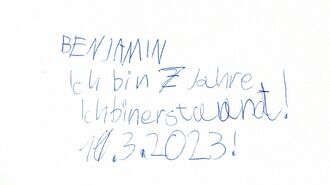 BENJAMIN
Ich bin 7 Jahre
Ich bin erstaunt!
11.3.2023!